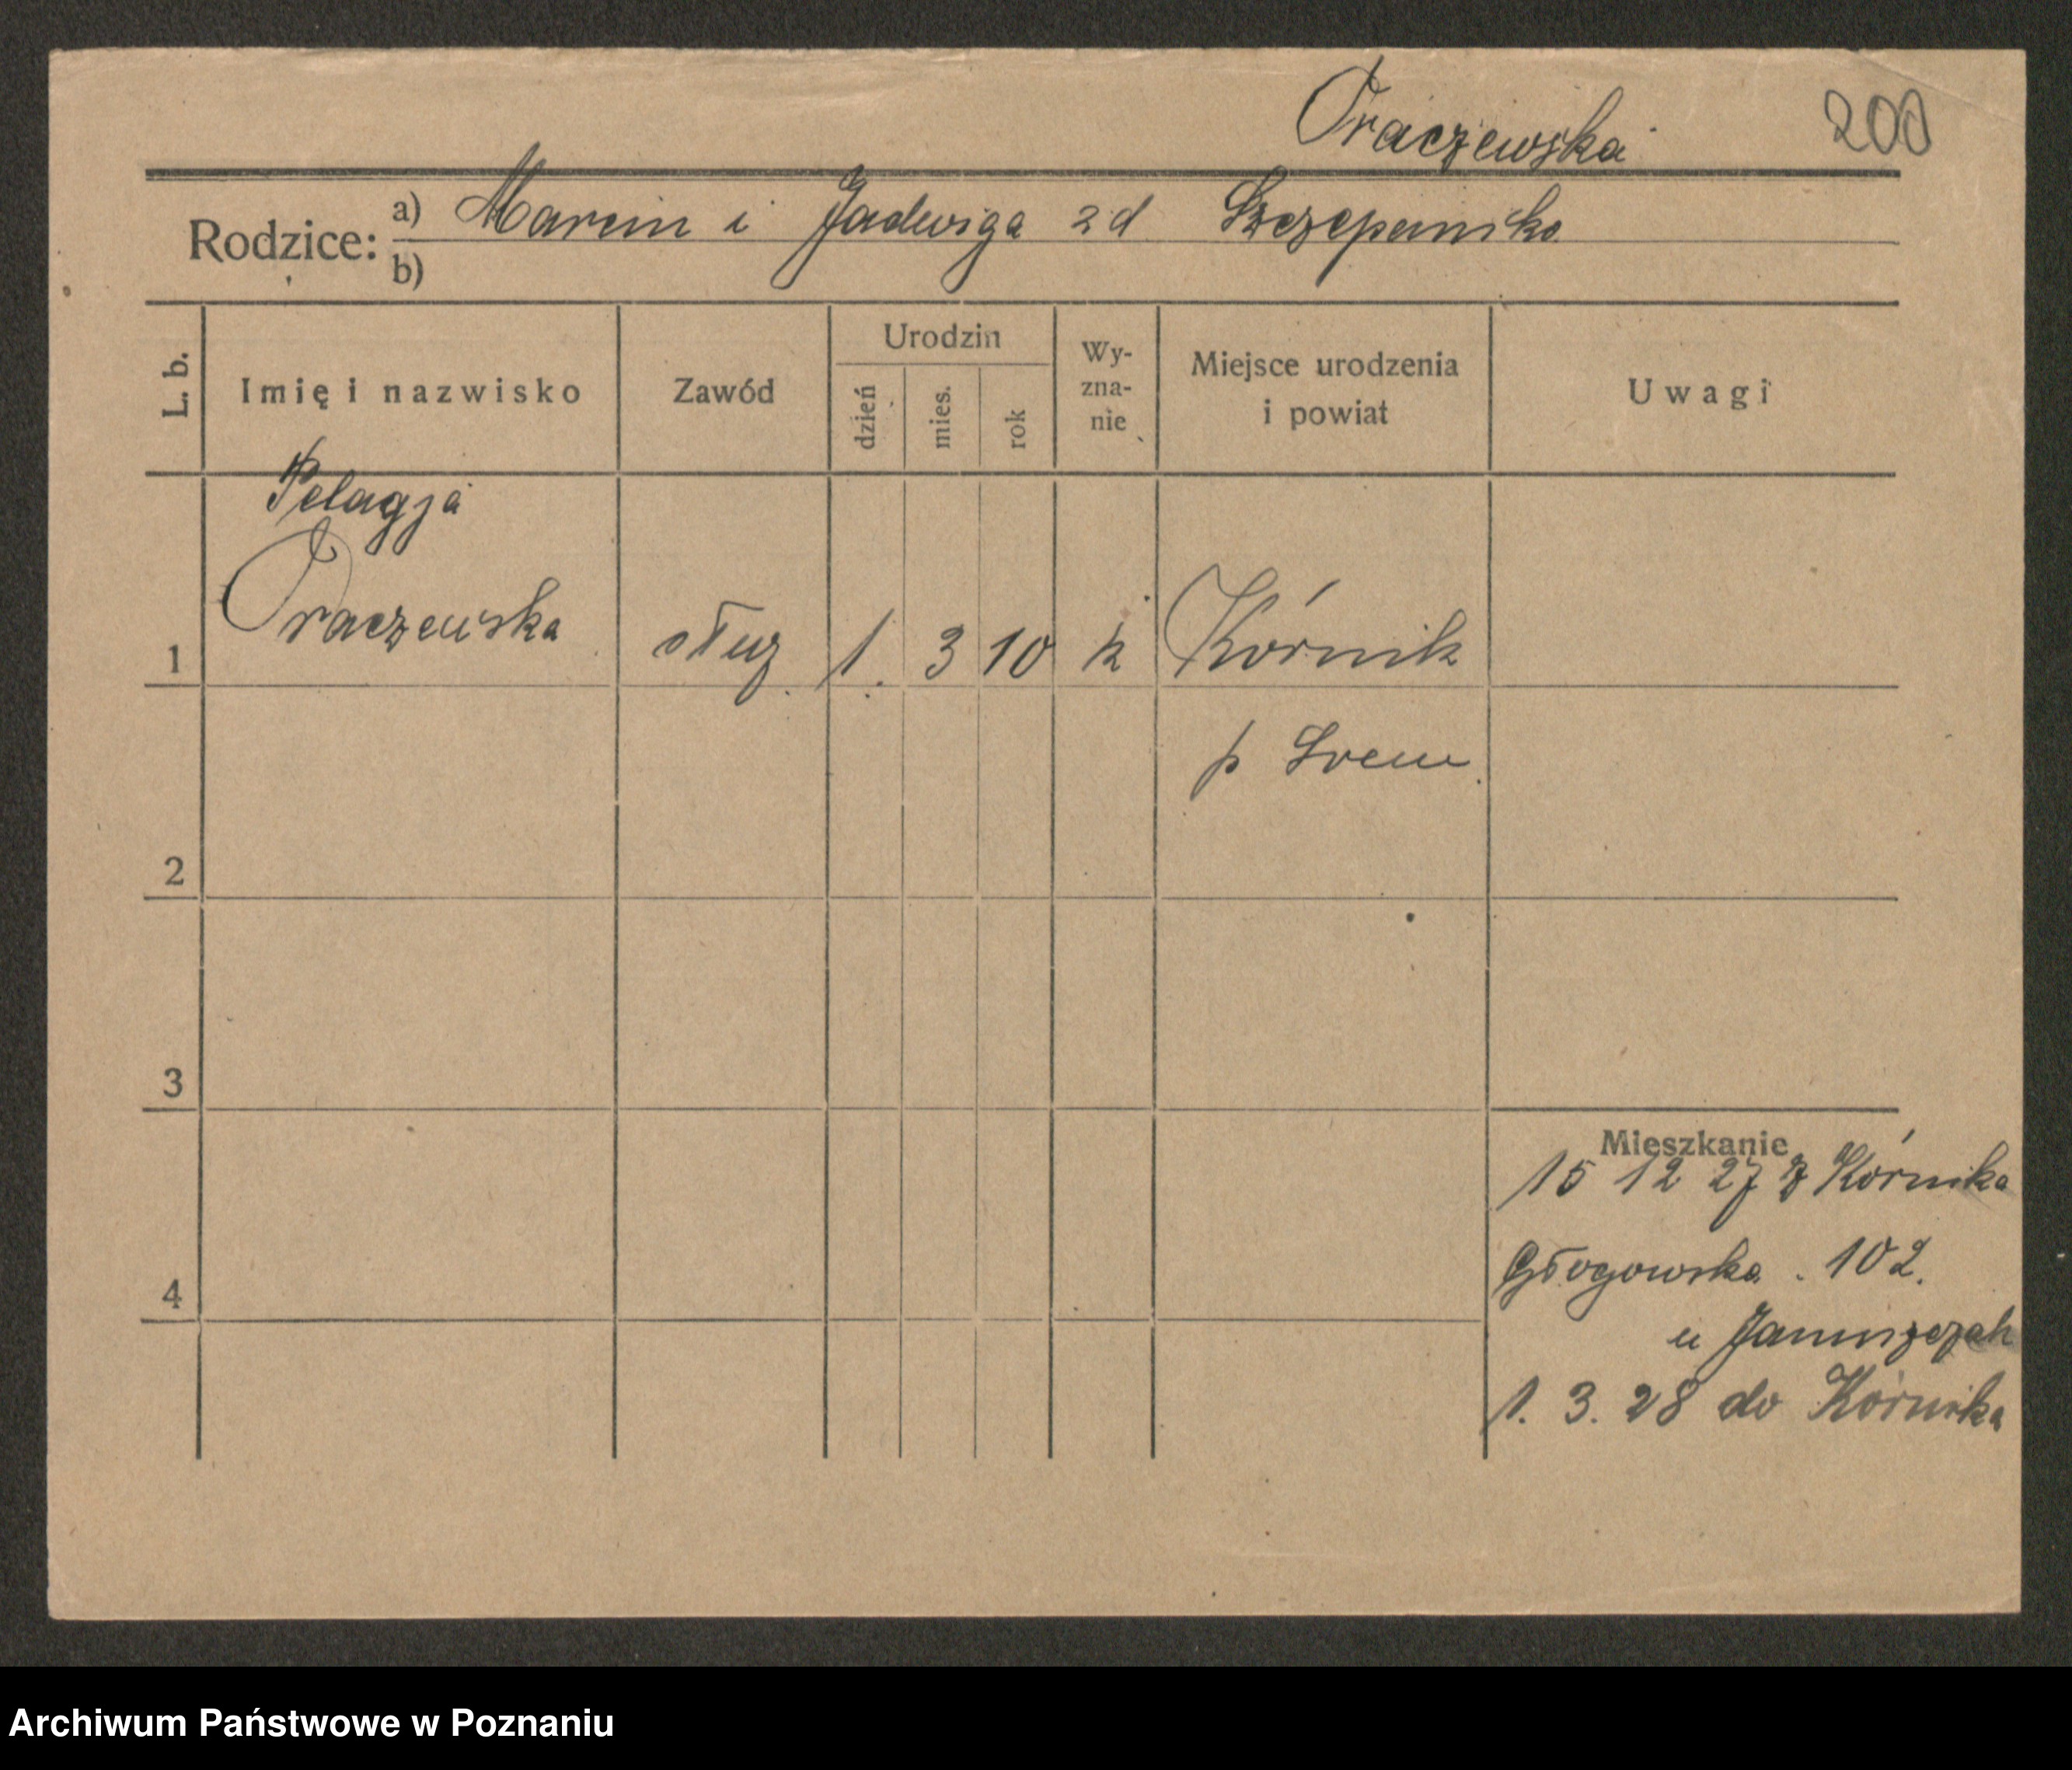 Oraczewska 200
Rodzice: a) Marcin i Jadwiga zd Szczepaniska
b)
L. b. Imię i nazwisko Zawód Urodzin dzień mies. rok Wy-zna-nie Miejsce urodzenia i powiat Uwagi
Pelagja
1 Oraczewska służ. 1. 3 10 k Kórnik
p Srem
2
3
Mieszkanie
15 12 27 z Kórnika
4 Głogowska . 102.
u
1. 3. 28 do Kórnika
Archiwum Państwowe w Poznaniu